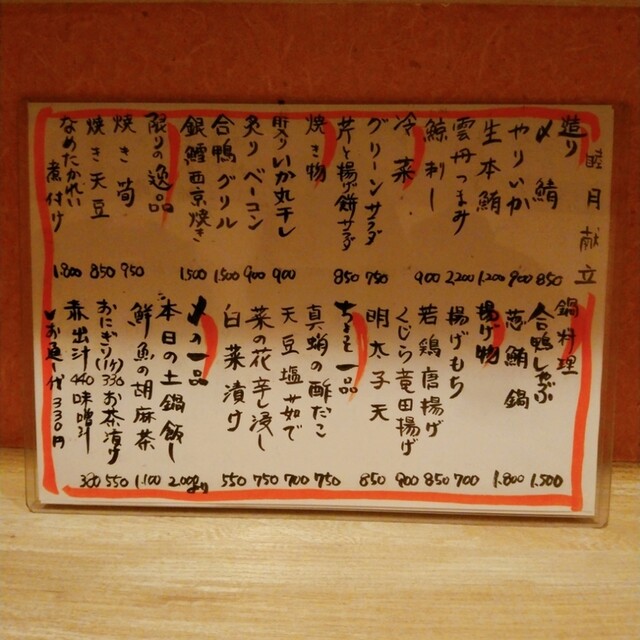 睦月献立
造り
〆鯖 850
やりいか 900
生本鮪 1.200
雲丹つまみ 2.200
鯨刺し 900
冷菜
グリーンサラダ 750
芹と揚げ餅サラダ 850
焼き物
肝入りいか丸干し 900
炙りベーコン 900
合鴨グリル 1.500
銀鱈西京焼き 1.500
限りの逸品
焼き筍 950
焼き天豆 850
なめたかれい煮付け 1.800
鍋料理
合鴨しゃぶ 1.500
葱鮪鍋 1.800
揚げ物
揚げもち 700
若鶏唐揚げ 850
くじら竜田揚げ 900
明太子天 850
ちょっと一品
真蛸の酢だこ 750
天豆塩茹で 700
菜の花辛し浸し 750
白菜漬け 550
〆の一品
本日の土鍋飯 2.000より
鮮魚の胡麻茶 1.100
おにぎり(1ヶ)330 お茶漬け 550
赤出汁 440 味噌汁 330
お通し代 330円